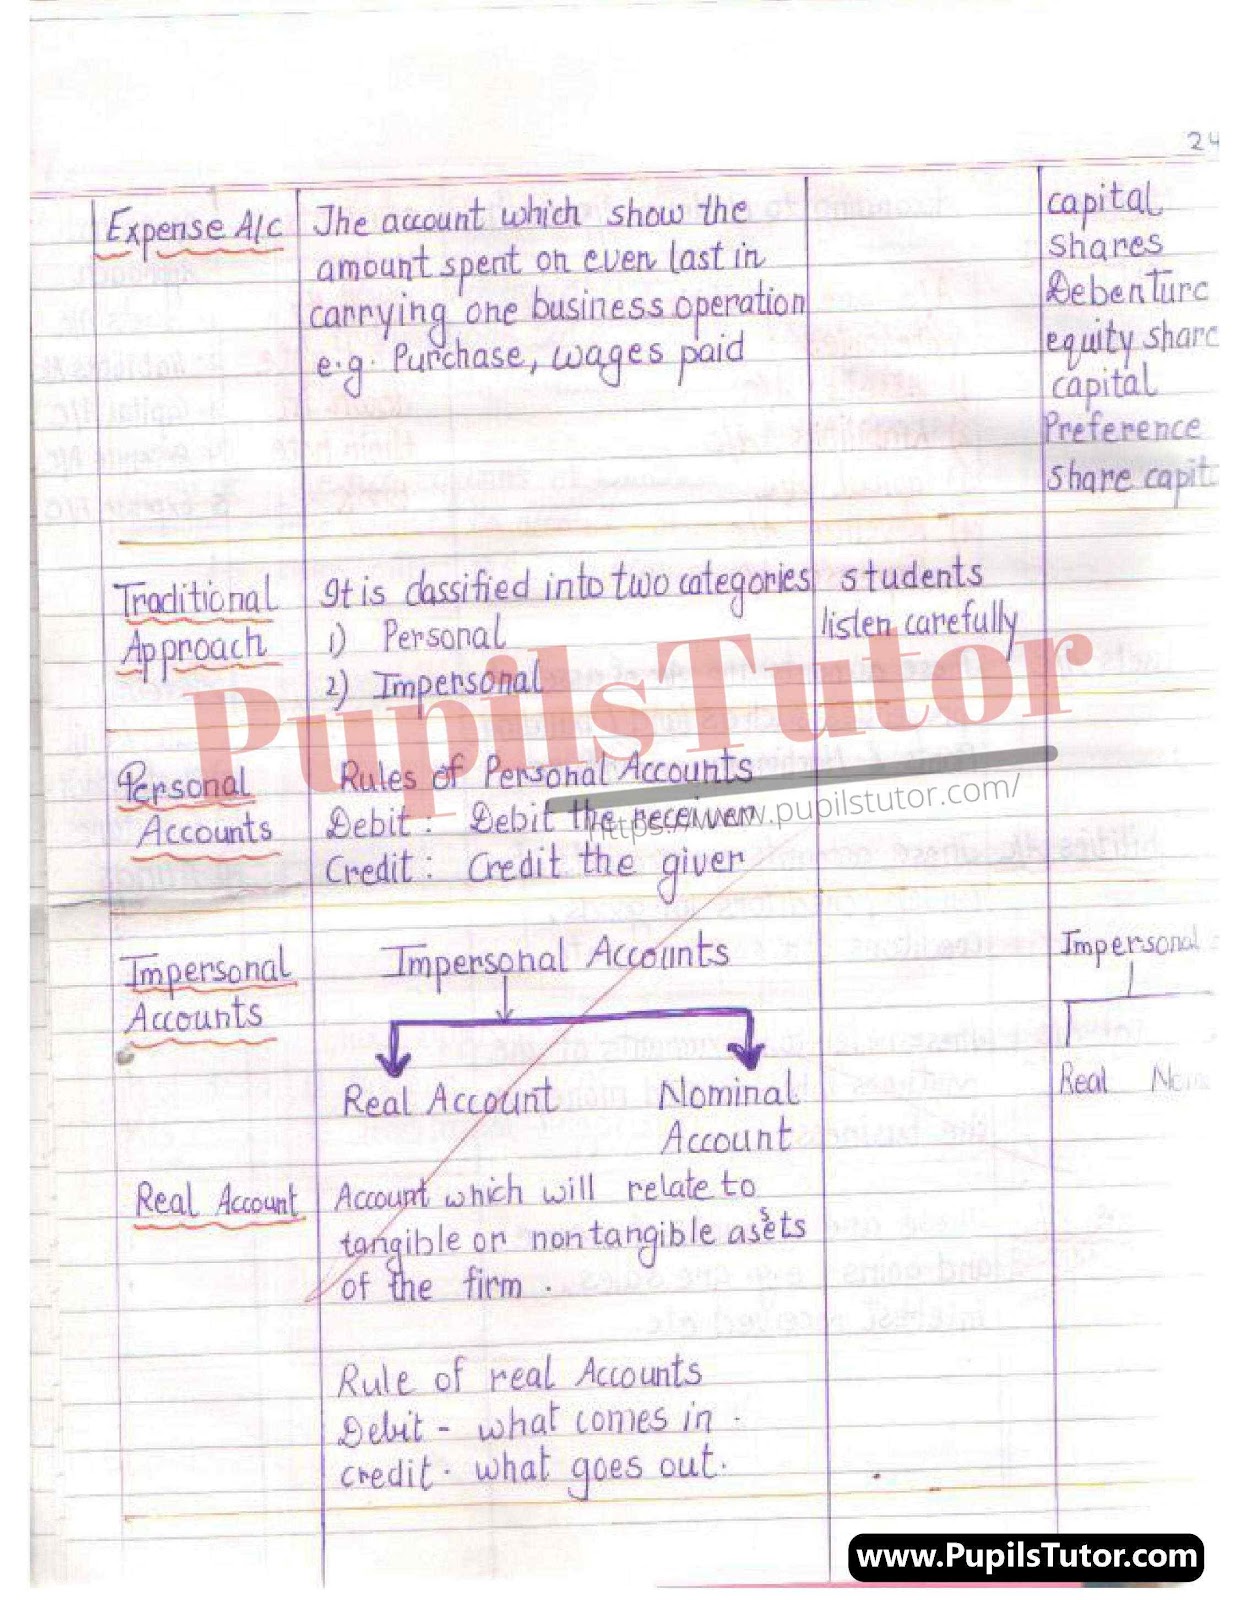 24
Expense A/c
The account which show the
amount spent on even last in
carrying one business operation
e.g. Purchase, wages paid
capital
shares
Debenture
equity share
capital
Preference
share capit
Traditional
Approach
It is classified into two categories
1) Personal
2) Impersonal
students
listen carefully
PupilsTutor
https://www.pupilstutor.com/
Personal
Accounts
Rules of Personal Accounts
Debit : Debit the receiver
Credit : Credit the giver
Impersonal
Accounts
Impersonal Accounts
Real Account
Nominal
Account
Impersonal
Real
Real Account
Account which will relate to
tangible or non tangible assets
of the firm .
Rule of real Accounts
Debit - what comes in .
credit - what goes out.
www.PupilsTutor.com